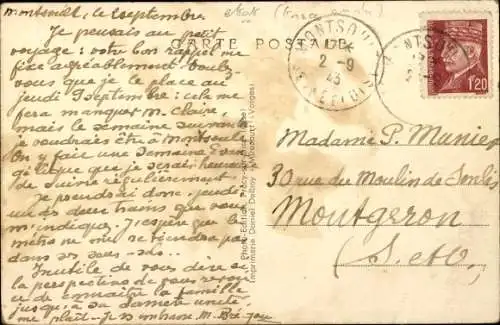 montsoult, le 2 septembre.
Je pensais au petit
voyage : votre bon rappel me
fixe agréablement. Voulez
vous que je le place au
jeudi 9 septembre : cela me
fera manquer M. Claire,
mais la semaine suivante
je voudrais être à Montsoult.
On y fait une semaine
que je serais heureux
de suivre régulièrement.
Je prendrai donc, jeudi,
un des deux trains que vous
m'indiquez. J'espère que le
métro ne me retardera pas
dans
Inutile de vous dire si
la perspective de vous revoir
de connaître la famille
jusqu'à sa dernière unité
me plaît. Je vous embrasse. M.
CARTE POSTALE
MONTSOULT
2 - 9
43
MONTSOULT
1f20
Madame P. Munier
30 rue du Moulin de Senlis
Montgeron
(S. et O.)
Imprimerie Daniel Delboy - Mirecourt (Vosges)